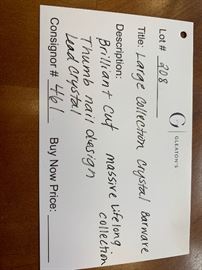 G
GLEATON'S
Lot # 208
Title: Large Collection Crystal Barware
Description: massive lifelong collection
Brilliant Cut
Thumb nail design
Lead Crystal
Consignor # 461 Buy Now Price: